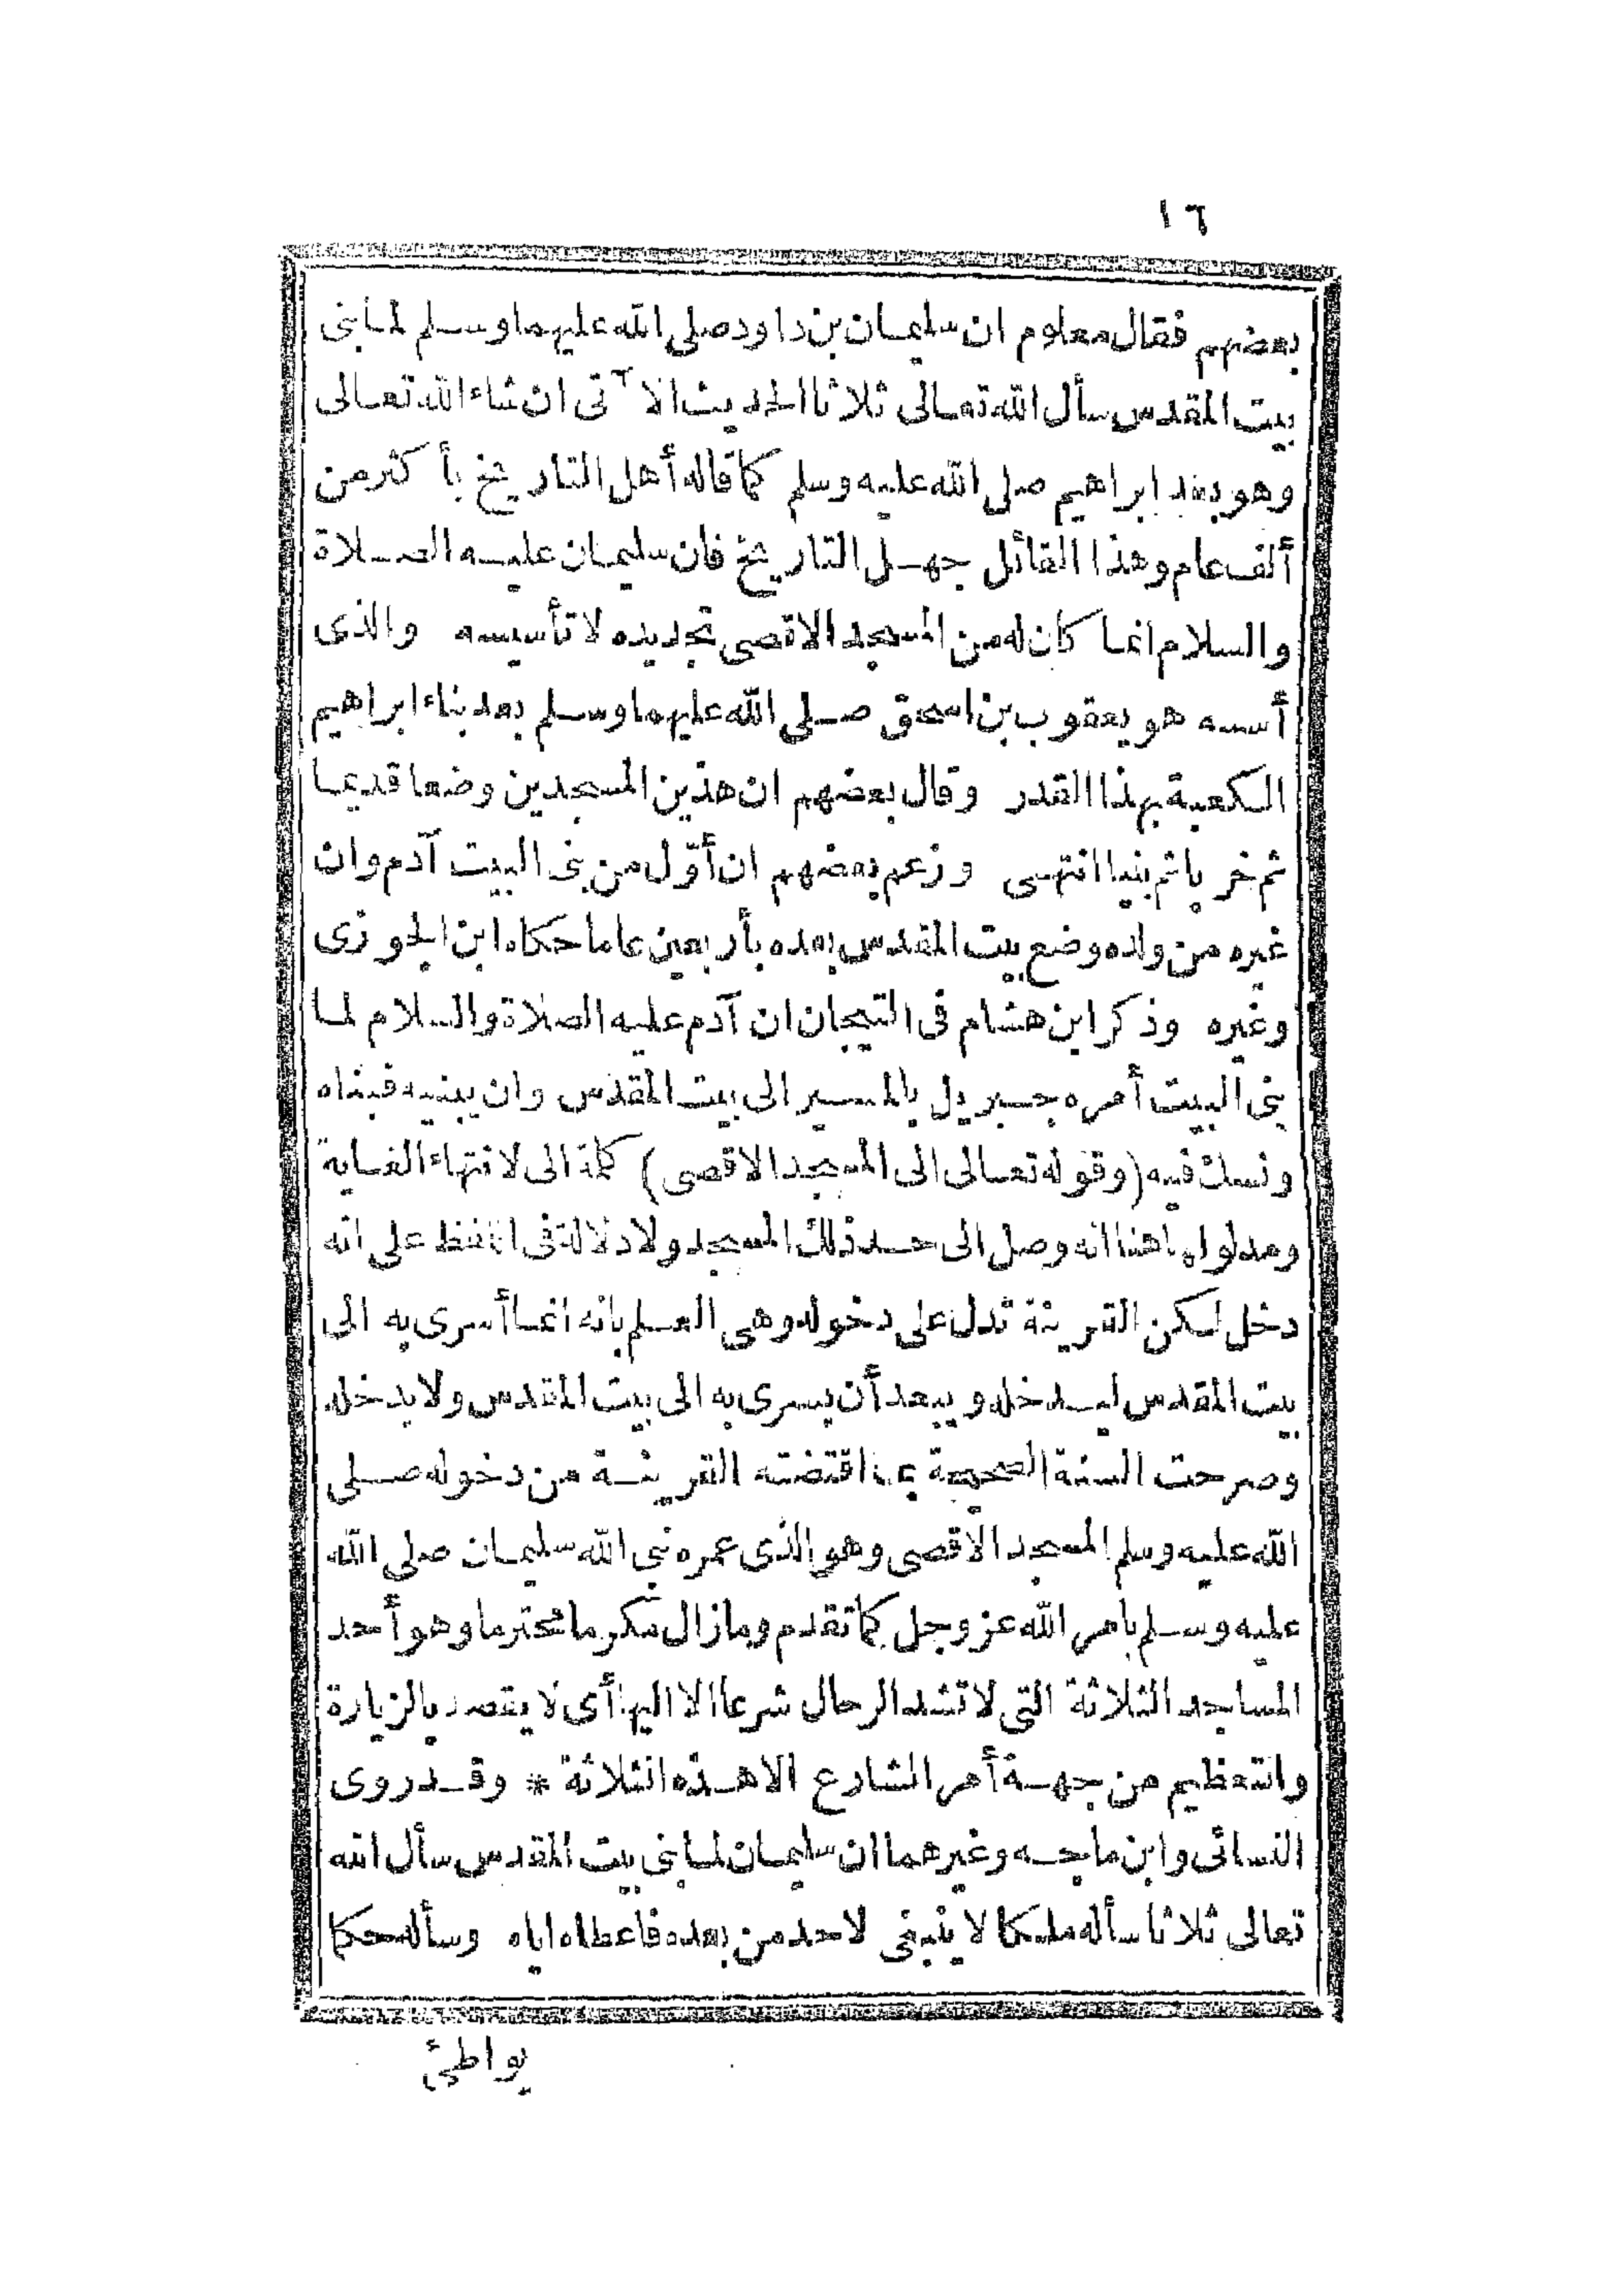 ١٦
بعضهم فقال معلوم ان سليمان بن داود صلى الله عليهما وسلم لما بنى
بيت المقدس سأل الله تعالى ثلاثا الحديث الآتى ان شاء الله تعالى
وهو بعد ابراهيم صلى الله عليه وسلم كما قاله أهل التاريخ بأكثر من
ألف عام وهذا القائل جهل التاريخ فان سليمان عليه الصلاة
والسلام انما كان له من المسجد الاقصى تجديده لا تأسيسه والذى
أسسه هو يعقوب بن اسحق صلى الله عليهما وسلم بعد بناء ابراهيم
الكعبة بهذا القدر وقال بعضهم ان هذين المسجدين وضعا قديما
ثم خربا ثم بنيا انتهى وزعم بعضهم ان أوّل من بنى البيت آدم وان
غيره من ولده وضع بيت المقدس بعده بأربعين عاما حكاه ابن الجوزى
وغيره وذكر ابن هشام فى التيجان ان آدم عليه الصلاة والسلام لما
بنى البيت أمره جبريل بالمسير الى بيت المقدس وان يبنيه فبناه
ونسك فيه (وقوله تعالى الى المسجد الاقصى) كلمة الى لانتهاء الغاية
ومدلولها هنا انه وصل الى حد ذلك المسجد ولا دلالة فى اللفظ على انه
دخل لكن القرينة تدل على دخوله وهى العلم بانه انما أسرى به الى
بيت المقدس ليدخله ويبعد أن يسرى به الى بيت المقدس ولا يدخله
وصرحت السنة الصحيحة بما اقتضته القرينة من دخوله صلى
الله عليه وسلم المسجد الاقصى وهو الذى عمره نبى الله سليمان صلى الله
عليه وسلم بامر الله عز وجل كما تقدم ومازال مكرما محترما وهو أحد
المساجد الثلاثة التى لا تشد الرحال شرعا الا اليها أى لا يقصد بالزيارة
والتعظيم من جهة أمر الشارع الا هذه الثلاثة * وقد روى
النسائى وابن ماجه وغيرهما ان سليمان لما بنى بيت المقدس سأل الله
تعالى ثلاثا سأله ملكا لا ينبغى لاحد من بعده فاعطاه اياه وسأله حكما
يواطئ